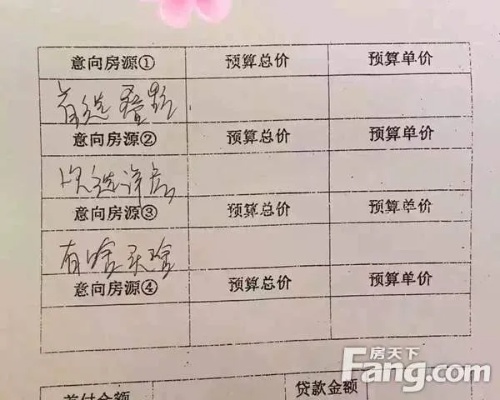 意向房源① 预算总价 预算单价
首选叠墅
意向房源② 预算总价 预算单价
次选洋房
意向房源③ 预算总价 预算单价
有啥买啥
意向房源④ 预算总价 预算单价
首付金额 贷款金额
房天下
Fang.com